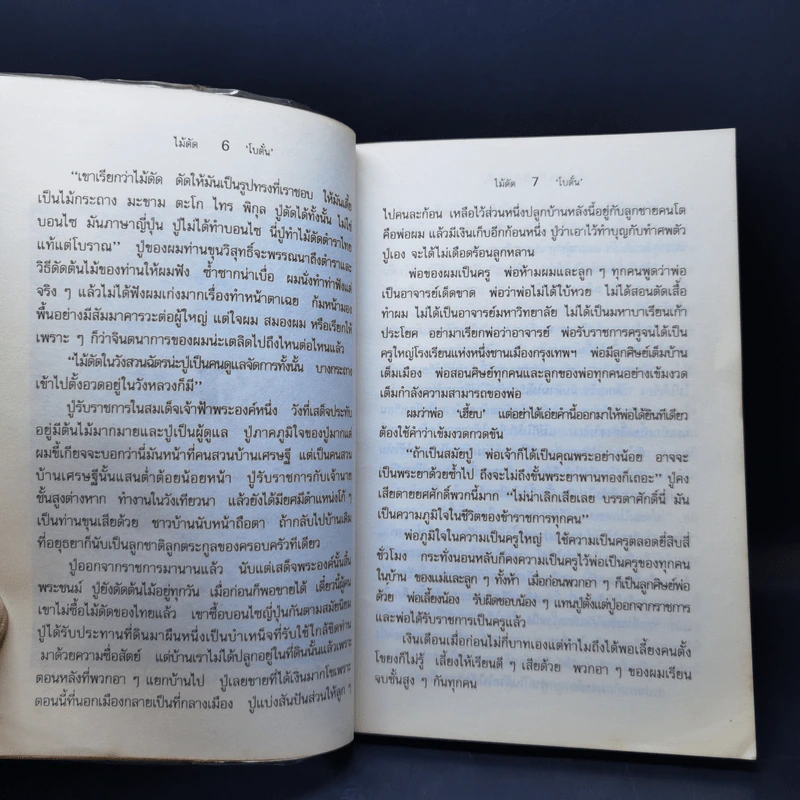 ไม้ดัด 6 'โบตั๋น'
“เขาเรียกว่าไม้ดัด ดัดให้มันเป็นรูปทรงที่เราชอบ ให้มันเตี้ย
เป็นไม้กระถาง มะขาม ตะโก ไทร พิกุล ปู่ดัดได้ทั้งนั้น ไม่ใช่
บอนไซ มันภาษาญี่ปุ่น ปู่ไม่ได้ทำบอนไซ นี่ปู่ทำไม้ดัดตำราไทย
แท้แต่โบราณ” ปู่ของผมท่านขุนวิสุทธิ์จะพรรณนาถึงตำราและ
วิธีดัดต้นไม้ของท่านให้ผมฟัง ซ้ำซากน่าเบื่อ ผมนั่งทำท่าฟังแต่
จริง ๆ แล้วไม่ได้ฟังผมเก่งมากเรื่องทำหน้าตาเฉย ก้มหน้ามอง
พื้นอย่างมีสัมมาคารวะต่อผู้ใหญ่ แต่ใจผม สมองผม หรือเรียกให้
เพราะ ๆ ก็ว่าจินตนาการของผมน่ะเตลิดไปถึงไหนต่อไหนแล้ว
“ไม้ดัดในวังสวนฉัตรน่ะปู่เป็นคนดูแลจัดการทั้งนั้น บางกระถาง
เข้าไปตั้งอวดอยู่ในวังหลวงก็มี”
ปู่รับราชการในสมเด็จเจ้าฟ้าพระองค์หนึ่ง วังที่เสด็จประทับ
อยู่มีต้นไม้มากมายและปู่เป็นผู้ดูแล ปู่ภาคภูมิใจของปู่มากแต่
ผมขี้เกียจจะบอกว่านี่มันหน้าที่คนสวนบ้านเศรษฐี แต่เป็นคนสวน
บ้านเศรษฐีนั้นแสนต่ำต้อยน้อยหน้า ปู่รับราชการกับเจ้านาย
ชั้นสูงต่างหาก ทำงานในวังเทียวนา แล้วยังได้มียศมีตำแหน่งโก้ ๆ
เป็นท่านขุนเสียด้วย ชาวบ้านนับหน้าถือตา ถ้ากลับไปบ้านเดิม
ที่อยุธยาก็นับเป็นลูกชาติลูกตระกูลของครอบครัวทีเดียว
ปู่ออกจากราชการมานานแล้ว นับแต่เสด็จพระองค์นั้นสิ้น
พระชนม์ ปู่ยังดัดต้นไม้อยู่ทุกวัน เมื่อก่อนก็พอขายได้ เดี๋ยวนี้ผู้คน
เขาไม่ซื้อไม้ดัดของไทยแล้ว เขาซื้อบอนไซญี่ปุ่นกันตามสมัยนิยม
ปู่ได้รับประทานที่ดินมาผืนหนึ่งเป็นบำเหน็จที่รับใช้ใกล้ชิดท่าน
มาด้วยความซื่อสัตย์ แต่บ้านเราไม่ได้ปลูกอยู่ในที่ดินนั้นแล้วเพราะ
ตอนหลังที่พวกอา ๆ แยกบ้านไป ปู่เลยขายที่ได้เงินมากโขเพราะ
ตอนนี้ที่นอกเมืองกลายเป็นที่กลางเมือง ปู่แบ่งสันปันส่วนให้ลูก ๆ
ไม้ดัด 7 'โบตั๋น'
ไปคนละก้อน เหลือไว้ส่วนหนึ่งปลูกบ้านหลังนี้อยู่กับลูกชายคนโต
คือพ่อผม แล้วมีเงินเก็บอีกก้อนหนึ่ง ปู่ว่าเอาไว้ทำบุญกับทำศพตัว
ปู่เอง จะได้ไม่เดือดร้อนลูกหลาน
พ่อของผมเป็นครู พ่อห้ามผมและลูก ๆ ทุกคนพูดว่าพ่อ
เป็นอาจารย์เด็ดขาด พ่อว่าพ่อไม่ได้ใบ้หวย ไม่ได้สอนตัดเสื้อ
ทำผม ไม่ได้เป็นอาจารย์มหาวิทยาลัย ไม่ได้เป็นมหาบาเรียนเก้า
ประโยค อย่ามาเรียกพ่อว่าอาจารย์ พ่อรับราชการครูจนได้เป็น
ครูใหญ่โรงเรียนแห่งหนึ่งชานเมืองกรุงเทพฯ พ่อมีลูกศิษย์เต็มบ้าน
เต็มเมือง พ่อสอนศิษย์ทุกคนและลูกของพ่อทุกคนอย่างเข้มงวด
เต็มกำลังความสามารถของพ่อ
ผมว่าพ่อ 'เฮี้ยบ' แต่อย่าได้เอ่ยคำนี้ออกมาให้พ่อได้ยินทีเดียว
ต้องใช้คำว่าเข้มงวดกวดขัน
“ถ้าเป็นสมัยปู่ พ่อเจ้าก็ได้เป็นคุณพระอย่างน้อย อาจจะ
เป็นพระยาด้วยซ้ำไป ถึงจะไม่ถึงชั้นพระยาพานทองก็เถอะ” ปู่คง
เสียดายยศศักดิ์พวกนี้มาก “ไม่น่าเลิกเสียเลย บรรดาศักดิ์นี่ มัน
เป็นความภูมิใจในชีวิตของข้าราชการทุกคน”
พ่อภูมิใจในความเป็นครูใหญ่ ใช้ความเป็นครูตลอดยี่สิบสี่
ชั่วโมง กระทั่งนอนหลับก็คงความเป็นครูไว้พ่อเป็นครูของทุกคน
ในบ้าน ของแม่และลูก ๆ ทั้งห้า เมื่อก่อนพวกอา ๆ ก็เป็นลูกศิษย์พ่อ
ด้วย พ่อเลี้ยงน้อง รับผิดชอบน้อง ๆ แทนปู่ตั้งแต่ปู่ออกจากราชการ
และพ่อได้รับราชการเป็นครูแล้ว
เงินเดือนเมื่อก่อนไม่กี่บาทเองแต่ทำไมถึงได้พอเลี้ยงคนตั้ง
โขยงก็ไม่รู้ เลี้ยงให้เรียนดี ๆ เสียด้วย พวกอา ๆ ของผมเรียน
จบชั้นสูง ๆ กันทุกคน